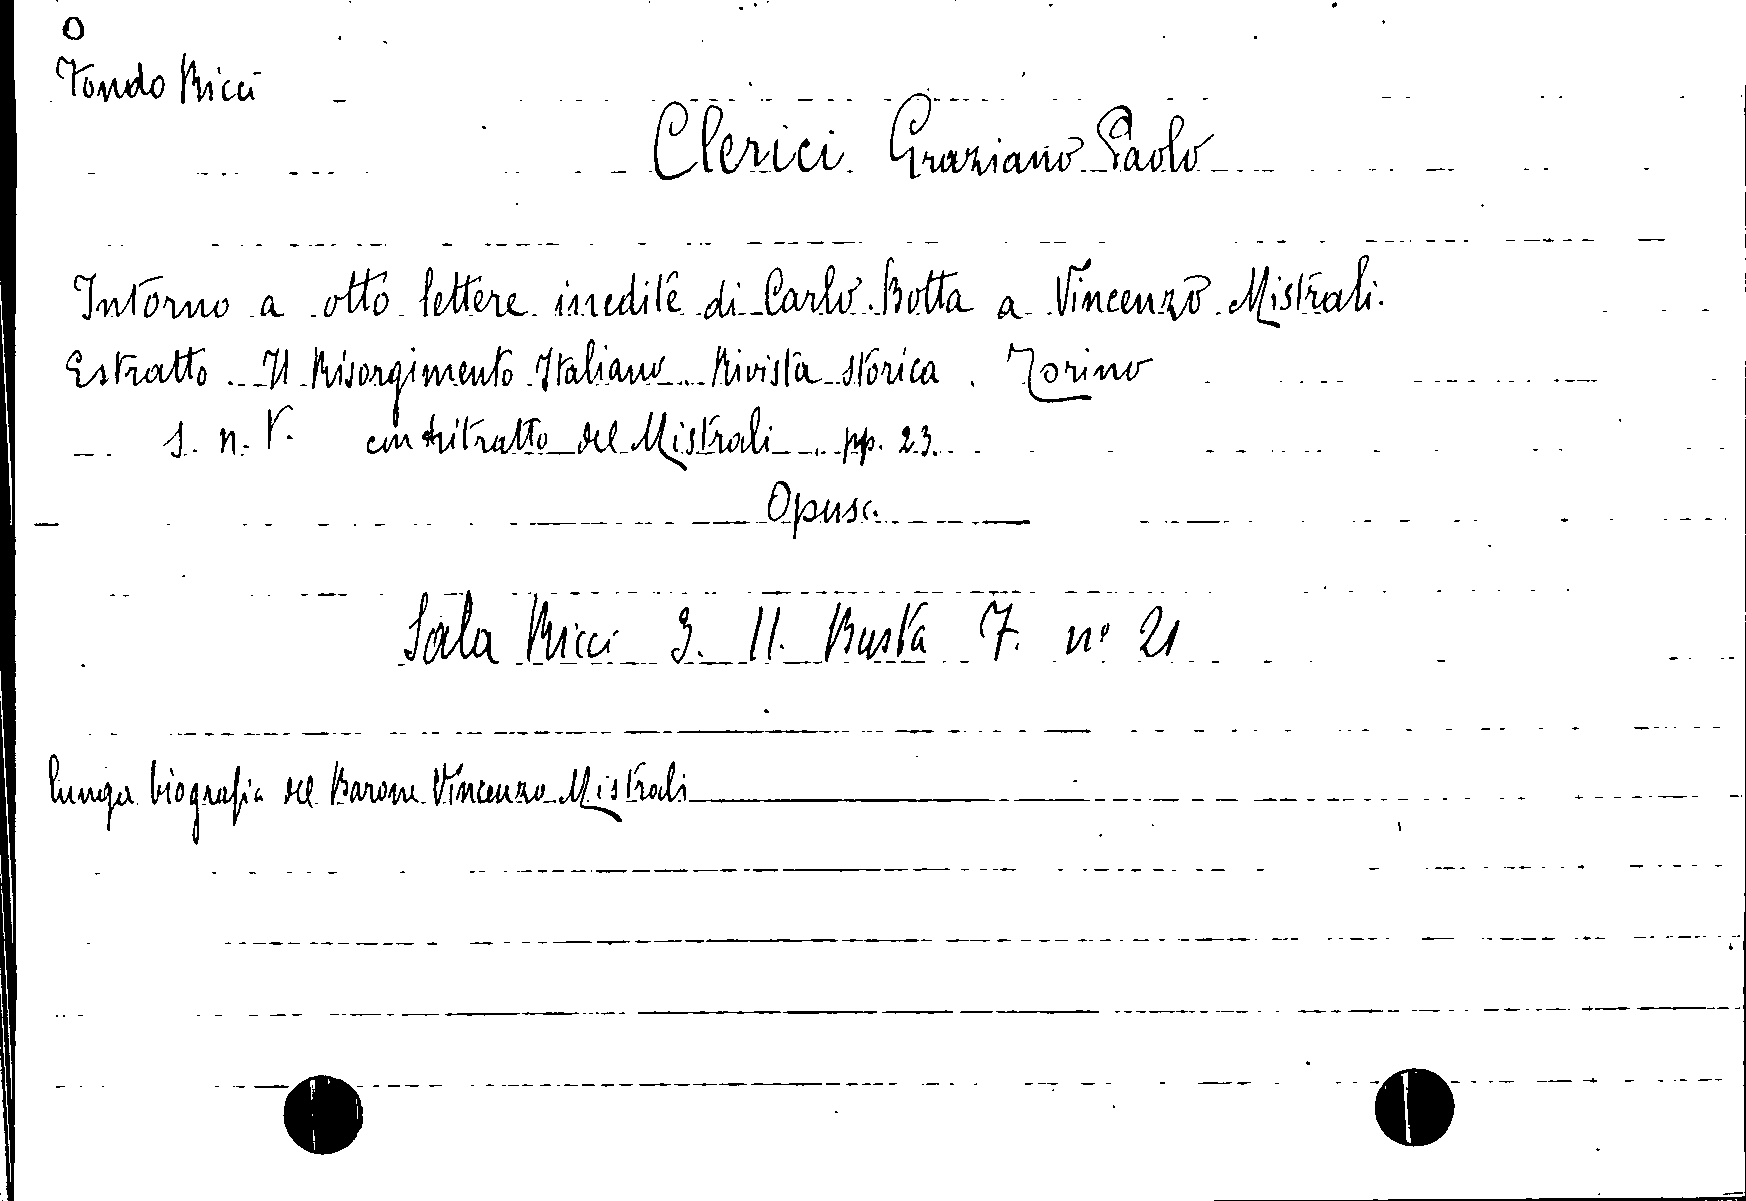 O
Fondo Ricci
Clerici Graziano Paolo
Intorno a otto lettere inedite di Carlo Botta a Vincenzo Mistrali.
Estratto. Il Risorgimento Italiano. Rivista storica. Torino
s. n. t. con ritratto del Mistrali. pp. 23.
Opusc.
Sala Ricci 3. II. Busta 7. nº 21
lunga biografia del Barone Vincenzo Mistrali